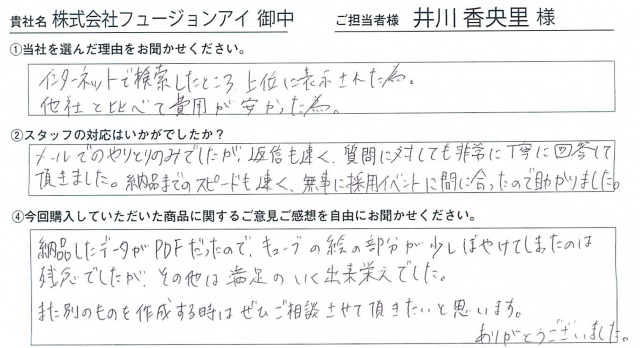 貴社名 株式会社フュージョンアイ 御中 ご担当者様 井川 香央里 様
①当社を選んだ理由をお聞かせください。
インターネットで検索したところ 上位に表示された為。
他社と比べて費用が安かった為。
②スタッフの対応はいかがでしたか？
メールでのやりとりのみでしたが、返信も速く、質問に対しても非常に丁寧に回答して
頂きました。納品までのスピードも速く、無事に採用イベントに間に合ったので助かりました。
④今回購入していただいた商品に関するご意見ご感想を自由にお聞かせください。
納品したデータがPDFだったので、キューブの絵の部分が少しぼやけてしまったのは
残念でしたが、その他は満足のいく出来栄えでした。
また別のものを作成する時はぜひご相談させて頂きたいと思います。
ありがとうございました。